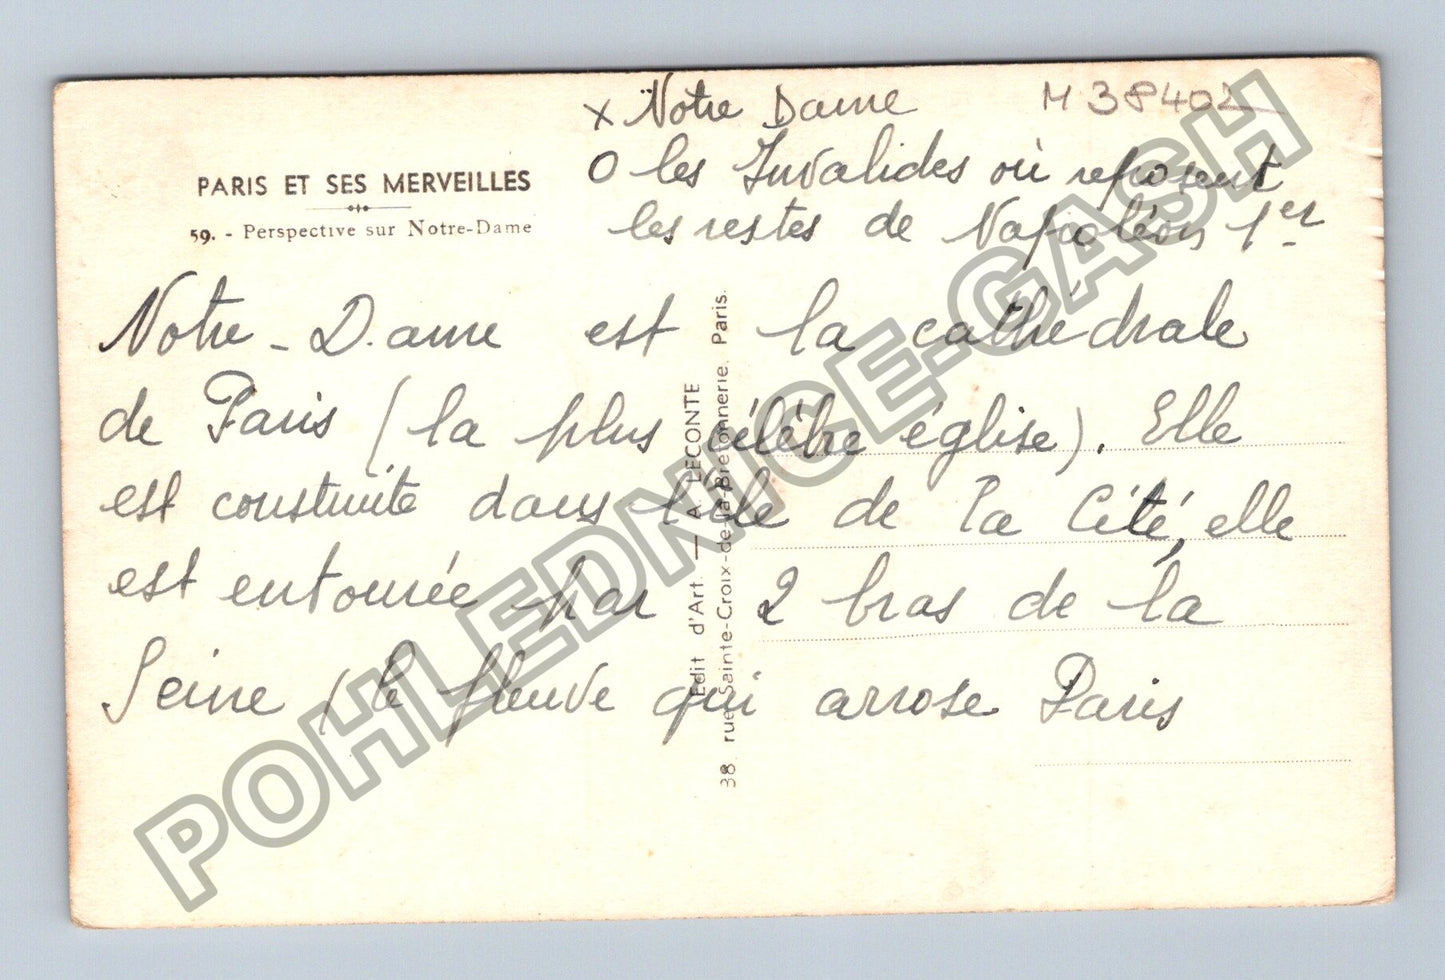 × Notre Dame
M 38402
O les Invalides où reposent
les restes de Napoléon 1er
PARIS ET SES MERVEILLES
59. - Perspective sur Notre-Dame
Notre-Dame est la cathédrale
de Paris (la plus célèbre église). Elle
est construite dans l'île de la Cité, elle
est entourée par 2 bras de la
Seine (le fleuve qui arrose Paris
Edit d'Art. — A. LECONTE
38 rue Sainte-Croix-de-la-Bretonnerie. Paris.
POHLEDNICE-GASH